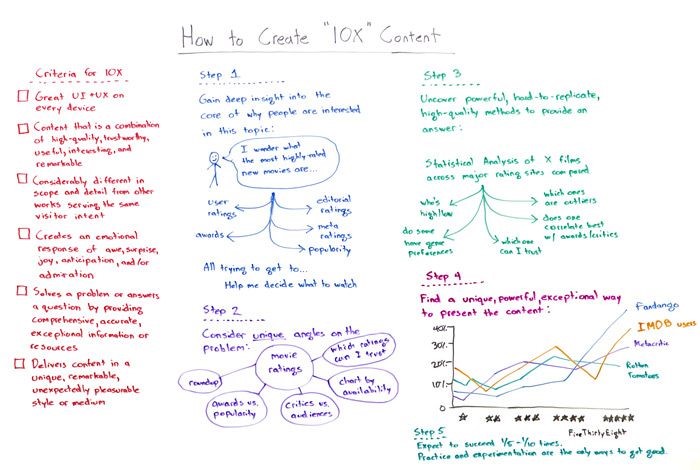 How to Create "10X" Content
Criteria for 10X
Great UI + UX on
every device
Content that is a combination
of high-quality, trustworthy,
useful, interesting, and
remarkable
Considerably different in
scope and detail from other
works serving the same
visitor intent
Creates an emotional
response of awe, surprise,
joy, anticipation, and/or
admiration
Solves a problem or answers
a question by providing
comprehensive, accurate,
exceptional information or
resources
Delivers content in a
unique, remarkable,
unexpectedly pleasurable
style or medium
Step 1
Gain deep insight into the
core of why people are interested
in this topic:
I wonder what
the most highly-rated
new movies are...
user
ratings
awards
editorial
ratings
meta
ratings
popularity
All trying to get to...
Help me decide what to watch
Step 2
Consider unique angles on the
problem:
movie
ratings
which ratings
can I trust
roundup
chart by
availability
awards vs.
popularity
critics vs.
audiences
Step 3
Uncover powerful, hard-to-replicate,
high-quality methods to provide an
answer:
Statistical Analysis of X films
across major rating sites compared
who's
high/low
which ones
are outliers
do some
have genre
preferences
does one
correlate best
w/ awards/critics
which one
can I trust
Step 4
Find a unique, powerful, exceptional way
to present the content:
Fandango
IMDB users
Metacritic
Rotten
Tomatoes
40%
30%
20%
10%
0
FiveThirtyEight
Step 5
Expect to succeed 1/5 - 1/10 times.
Practice and experimentation are the only ways to get good.